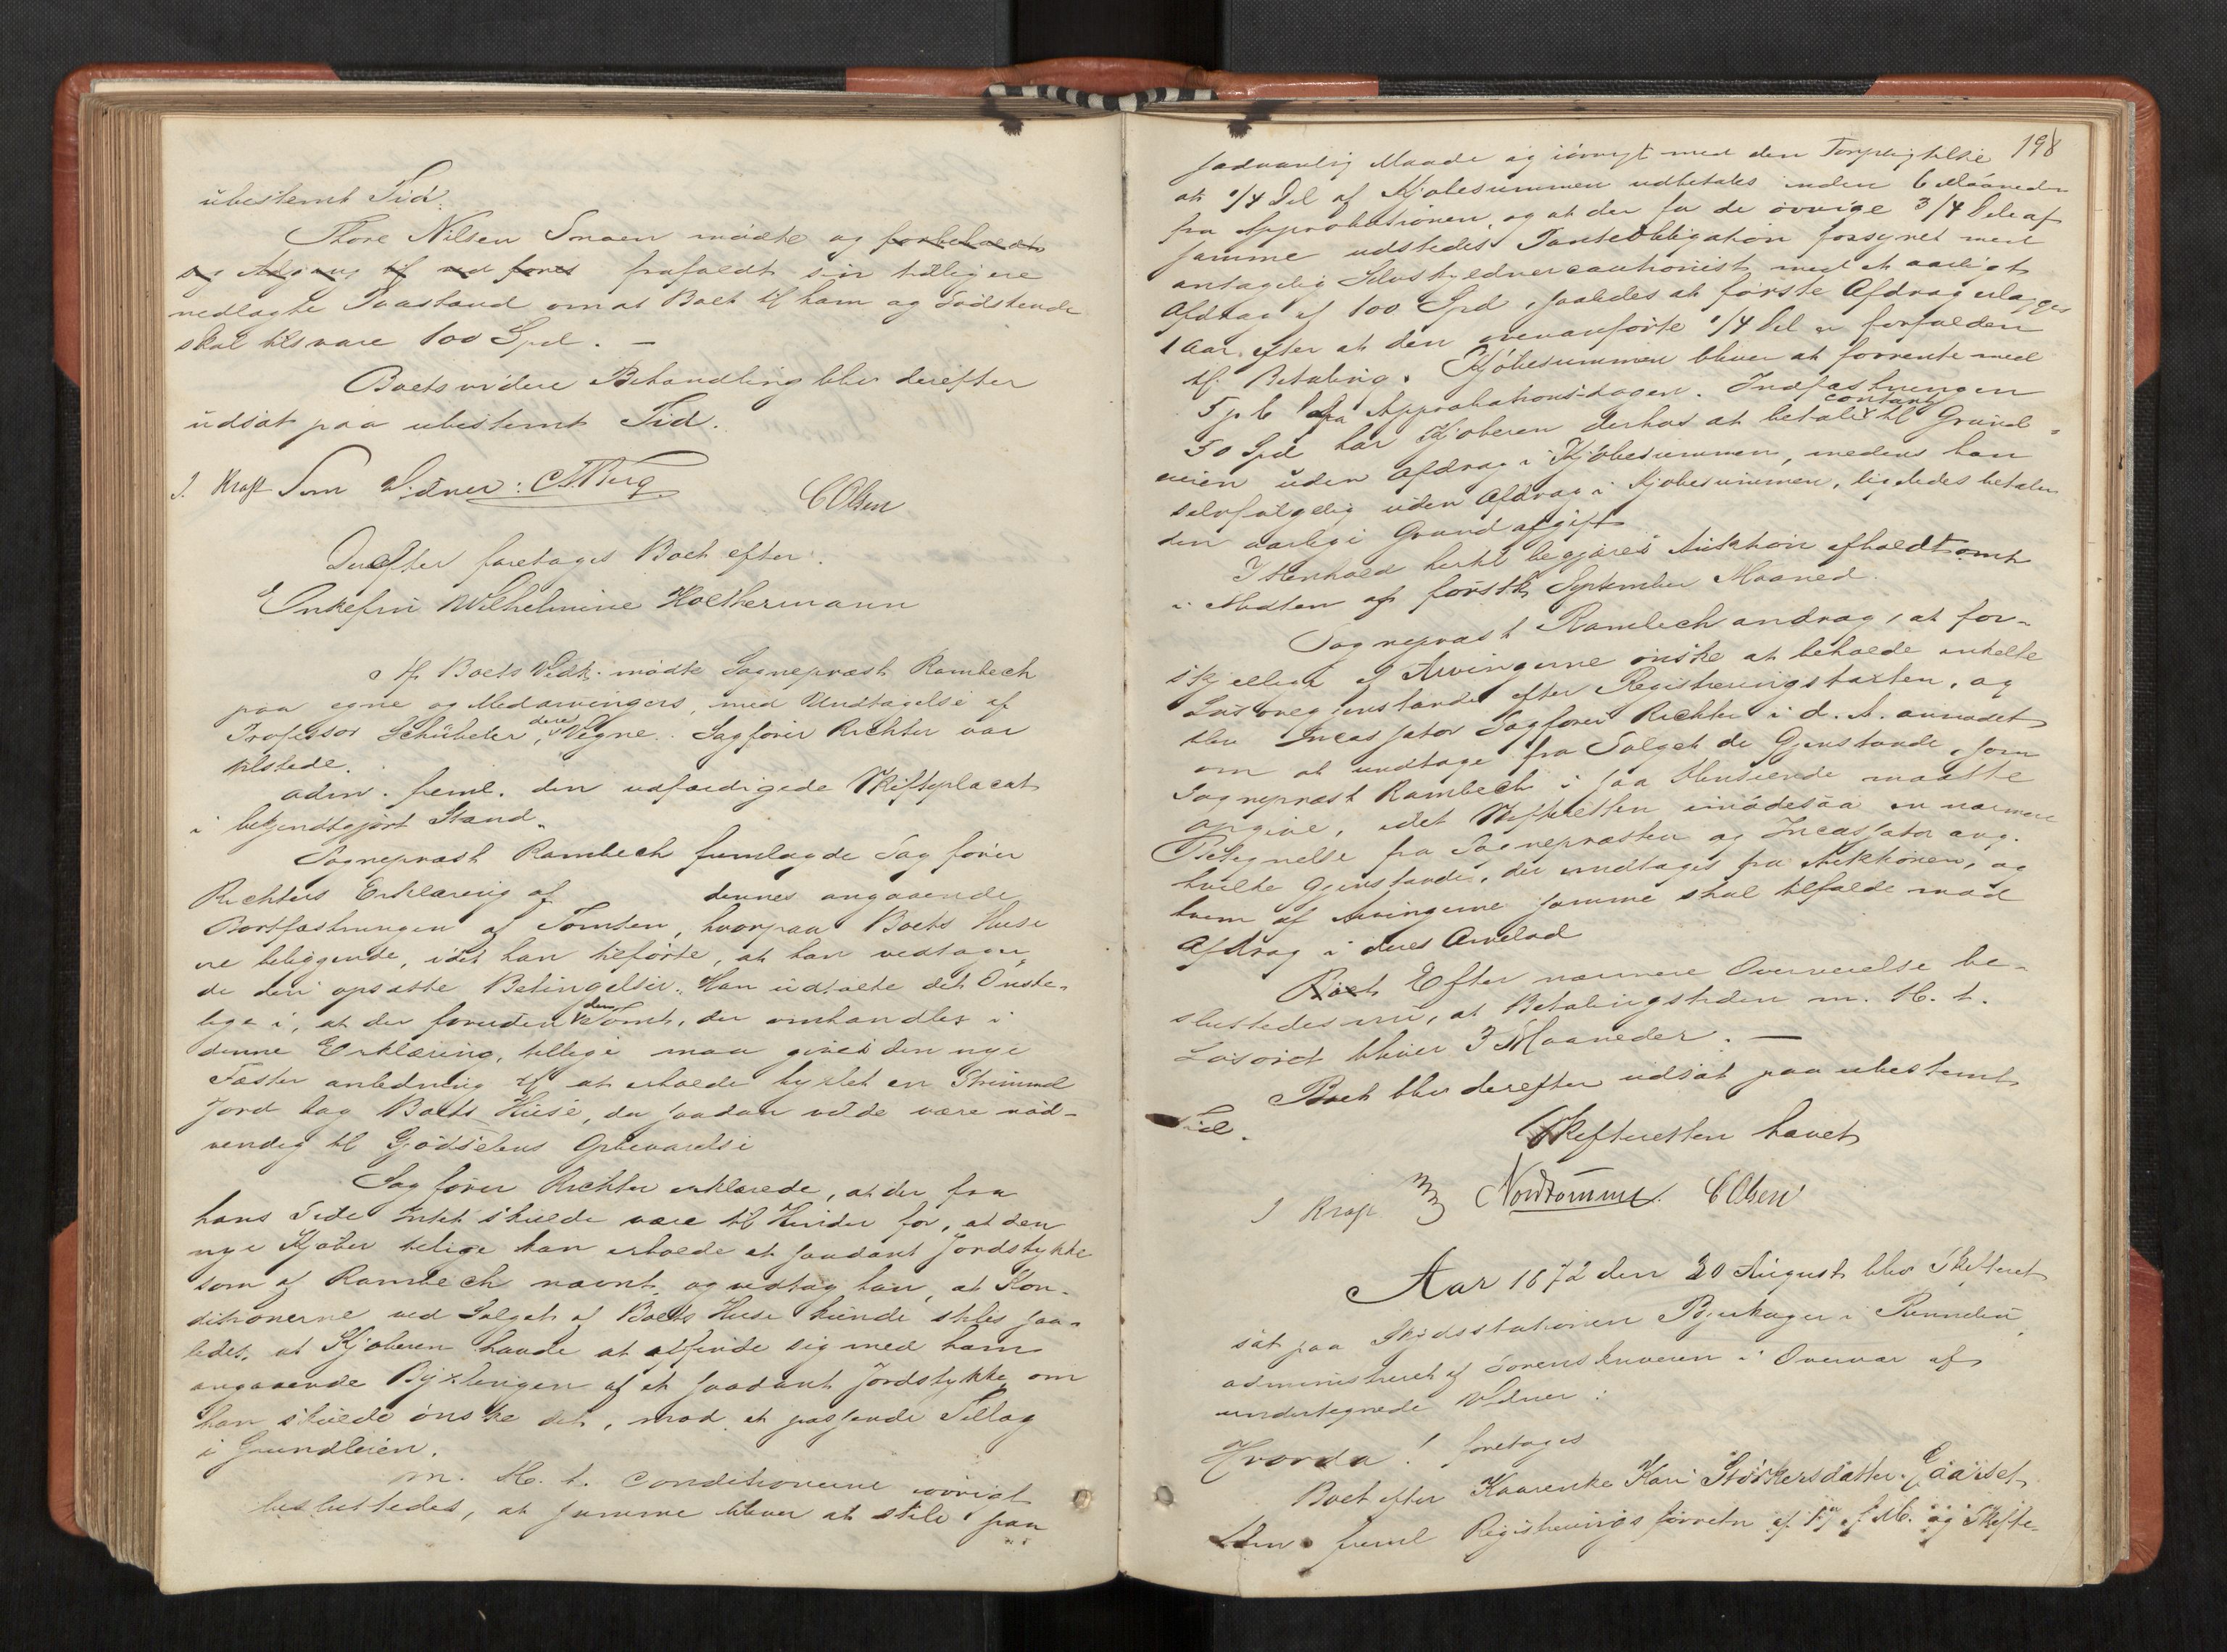 ubestemt Tid.
Thore Nilsen Smoen mødte og forbeholdt
sig Adgang til ved foret frafaldt sin tidligere
nedlagte Paastand om at Boet til ham og Södskende
skal tilsvare 100 Spd. —
Boets videre Behandling blev derefter
udsat paa ubestemt Tid.
J. Kraft Som Vidner: COlsen
Derefter foretages Boet efter
Enkefru Wilhelmine Holtermann
Af Boets Vedk. mødte Sognepræst Rambech
paa egne og Medarvingers, med Undtagelse af
Professor Schübeler, deres Vegne. Sagförer Richter var
tilstede.
Adm. freml. den udfærdigede Skifteplacat
i bekjendtgjort Stand.
Sognepræst Rambech fremlagde Sagförer
Richters Erklæring af dennes angaaende
Bortfæstningen af Tomten, hvorpaa Boets Huse
ere beliggende, idet han tilførte, at han vedtager
de deri opsatte Betingelser. Han udtalte det Önske-
lige i, at der foruden den Tomt, der omhandles i
denne Erklæring, tillige maa gives den nye
Fæster anledning til at erholde byxlet en Strimmel
Jord bag Boets Huse, da saadan vilde være nöd-
vendig til Gjödselens Opbevarelse
Sagförer Richter erklærede, at der fra
hans Side Intet skulde være til Hinder for, at den
nye Kjöber tillige kan erholde et saadant Jordstykke
som af Rambech nævnt, og vedtog han, at Kon-
ditionerne ved Salget af Boets Huse kunde stiles saa-
ledes, at Kjöberen havde at affinde sig med ham
angaaende Byxlingen af et saadant Jordstykke, om
han skulde önske det, mod et passende Tillæg
i Grundleien.
M. H. t. Conditionerne iövrigt
besluttedes, at samme bliver at stile paa
198
sædvanlig Maade og iövrigt med den Forpligtelse
at 1/4 Del af Kjöbesummen udbetales inden 6 Maaneder
fra Approbationen, og at der for de övrige 3/4 Dele af
samme udstedes Panteobligation forsynet med
antagelig Selvskyldnercautionist med et aarligt
Afdrag af 100 Spd, saaledes at förste Afdrag erlægges
1 Aar efter at den ovenanförte 1/4 Del er forfalden
til Betaling. Kjöbesummen bliver at forrente med
5 pCt fra Approbationsdagen. Indfæstningen
50 Spd har Kjöberen derhos at betale contant til Grund-
eieren uden Afdrag i Kjöbesummen, medens han
selvfölgelig uden Afdrag i Kjöbesummen, ligeledes betaler
den aarlige Grundafgift
I Henhold hertil begjæres Auktion afholdt omt
i Midten af förstk September Maaned.
Sognepræst Rambech androg, at for-
skjellige af Arvingerne önske at beholde enkelte
Lösöregjenstande efter Registreringstaxten, og
blev Incassator Sagförer Richter i d. A. anmodet
om at undtage fra Salget de Gjenstande, som
Sognepræst Rambech i saa Henseende maatte
opgive, idet Skifteretten imödesaa en nærmere
Betegnelse fra Sognepræsten og Incassator ang.
hvilke Gjenstande, der undtages fra Auktionen, og
hvem af Arvingerne samme skal tilfalde mod
Afdrag i deres Arvelod
Boet Efter nærmere Overveielse be-
sluttedes nu, at Betalingstiden m. H. t.
Lösöret bliver 3 Maaneder. —
Boet blev derefter udsat paa ubestemt
Tid.
Skifteretten hævet
J Kraft COlsen
Aar 1872 den 20 August blev Skifteret
sat paa Skydsstationen Bjerkager i Rennebu
administreret af Sorenskriveren i Overvær af
undertegnede Vidner:
Hvorda! foretages
Boet efter Kaarenke Kari Störkersdatter
Adm. freml Registreringsforretn af f. M. og Skifte-